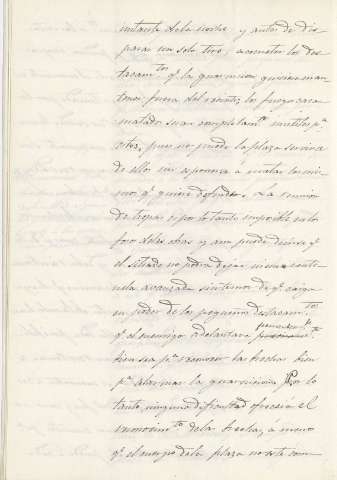 instante de la noche, y antes de dis
parar un solo tiro, acometer los des
tacam.tos q.e la guarnicion quisiera man
tener fuera del recinto; los fuegos casa
matados seran completam.te inutiles p.a
estos, pues no puede la plaza servirse
de ellos sin esponerse a matar los mis
mos q.e quiere defender. La reunion
de tropas es por lo tanto imposible en los
fosos de las obras y aun puede decirse q.e
el sitiado no podra dejar ni una centi
nela avanzada sin temor de q.e caiga
en poder de los pequeños destacam.tos
q.e el enemigo adelantara
bien sea p.a reconocer las brechas bien
p.a alarmar la guarnicion. Por lo
tanto, ninguna dificultad ofrecera el
reconocim.to de la brecha, a menos
q.e el cuerpo de la plaza no este com